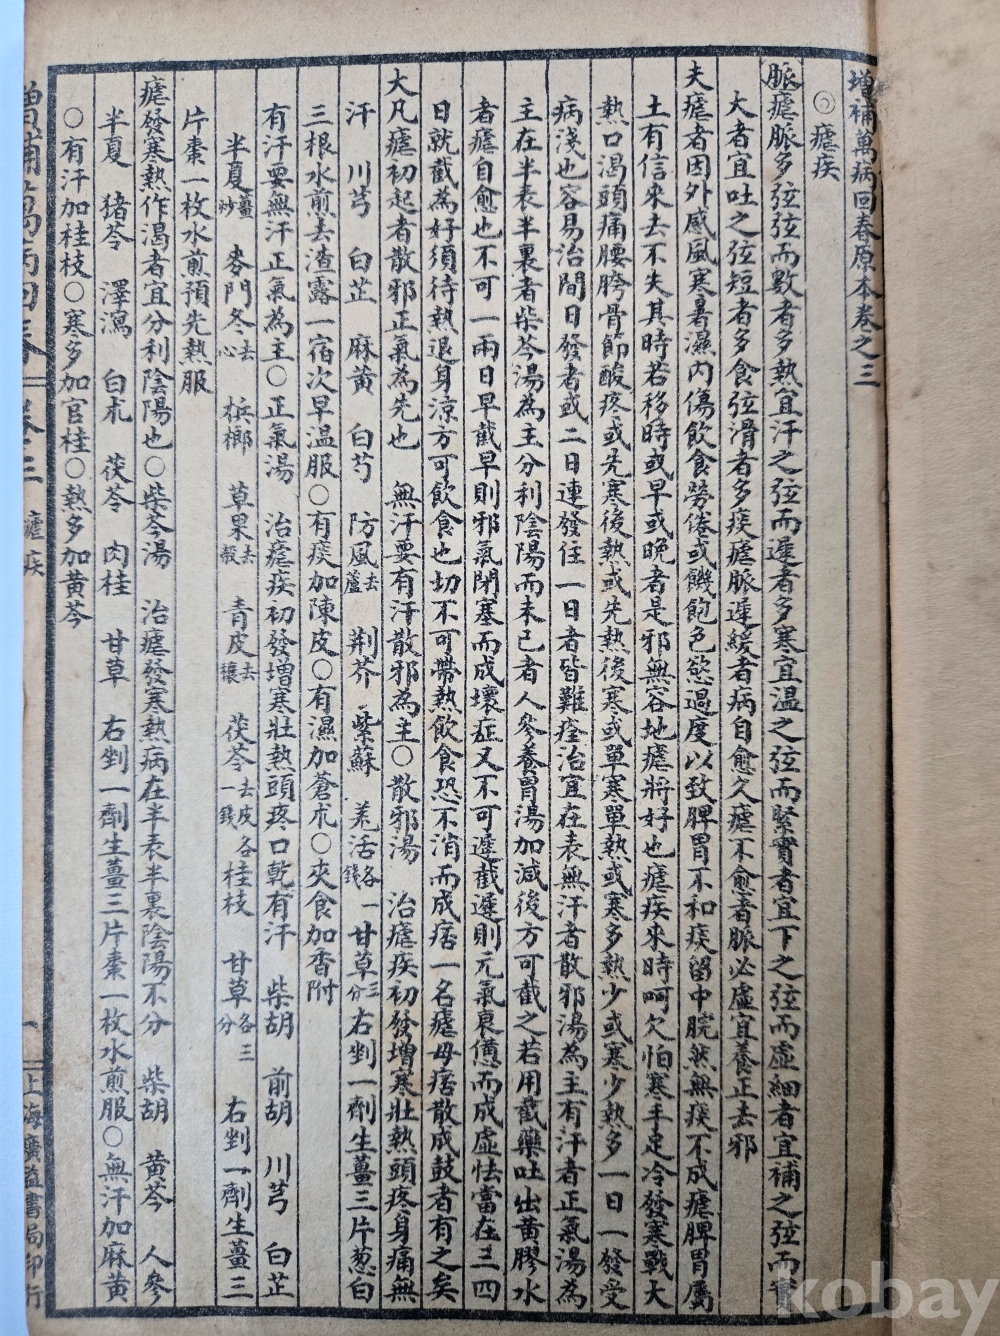 增補萬病回春原本卷之三
◎瘧疾
脈瘧脈多弦弦而數者多熱宜汗之弦而遲者多寒宜温之弦而緊實者宜下之弦而虛細者宜補之弦而實
大者宜吐之弦短者多食弦滑者多痰瘧脈遲緩者病自愈久瘧不愈者脈必虛宜養正去邪
夫瘧者因外感風寒暑濕內傷飲食勞倦或饑飽色慾過度以致脾胃不和痰留中脘然無痰不成瘧脾胃屬
土有信來去不失其時若移時或早或晚者是邪無容地瘧將好也瘧疾來時呵欠怕寒手足冷發寒戰大
熱口渴頭痛腰胯骨節酸疼或先寒後熱或先熱後寒或單寒單熱或寒多熱少或寒少熱多一日一發受
病淺也容易治間日發者或二日連發住一日者皆難痊治宜在表無汗者散邪湯為主有汗者正氣湯為
主在半表半裏者柴苓湯為主分利陰陽而未已者人參養胃湯加減後方可截之若用截藥吐出黃膠水
者瘧自愈也不可一兩日早截早則邪氣閉塞而成壞症又不可遲截遲則元氣衰憊而成虛怯當在三四
日就截為好須待熱退身涼方可飲食也切不可帶熱飲食恐不消而成痞一名瘧母痞散成鼓者有之矣
大凡瘧初起者散邪正氣為先也 無汗要有汗散邪為主○散邪湯 治瘧疾初發增寒壯熱頭疼身痛無
汗 川芎 白芷 麻黃 白芍 防風去蘆 荆芥 紫蘇 羌活各一錢 甘草三分 右剉一劑生薑三片葱白
三根水煎去渣露一宿次早温服○有痰加陳皮○有濕加蒼朮○夾食加香附
有汗要無汗正氣為主○正氣湯 治瘧疾初發增寒壯熱頭疼口乾有汗 柴胡 前胡 川芎 白芷
半夏薑炒 麥門冬去心 梹榔 草果去殼 青皮去穰 茯苓去皮各一錢 桂枝 甘草各三分 右剉一劑生薑三
片棗一枚水煎預先熱服
瘧發寒熱作渴者宜分利陰陽也○柴苓湯 治瘧發寒熱病在半表半裏陰陽不分 柴胡 黃芩 人參
半夏 猪苓 澤瀉 白朮 茯苓 肉桂 甘草 右剉一劑生薑三片棗一枚水煎服○無汗加麻黃
○有汗加桂枝○寒多加官桂○熱多加黃芩
增補萬病回春 卷三 瘧疾 一 上海廣益書局印行
kobay